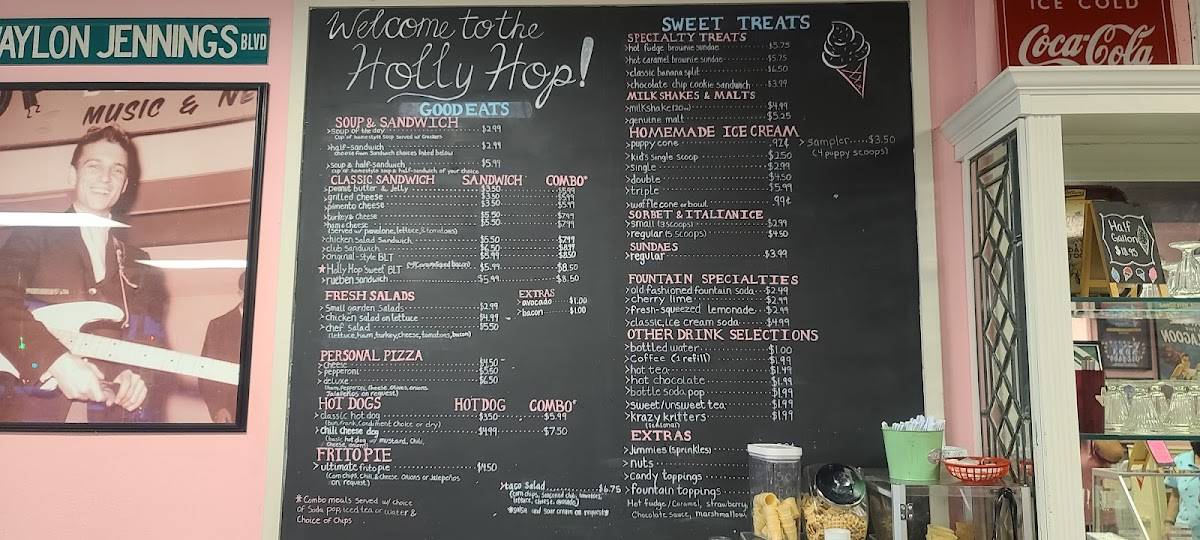 WAYLON JENNINGS BLVD
MUSIC & NE
Welcome to the
Holly Hop!
GOOD EATS
SOUP & SANDWICH
>Soup of the day $2.99
Cup of homestyle Soup Served w/ Crackers
>half-sandwich $2.99
choose from Sandwich choices listed below
>soup & half-sandwich $5.99
cup of homestyle soup & half-sandwich of your choice
CLASSIC SANDWICH SANDWICH COMBO*
>peanut butter & Jelly $3.50 $5.99
>grilled cheese $3.50 $5.99
>pimento cheese $3.50 $5.99
>turkey & cheese $5.50 $7.99
>ham & cheese $5.50 $7.99
(Served w/ provolone, lettuce, & tomatoes)
>chicken salad sandwich $5.50 $7.99
>club sandwich $6.50 $8.99
>original-style BLT $5.99 $8.50
*Holly Hop Sweet BLT (w/ caramelized bacon) $5.99 $8.50
>rueben sandwich $5.99 $8.50
FRESH SALADS
>Small garden Salads $2.99
>Chicken salad on lettuce $4.99
>chef salad $5.50
(lettuce, ham, turkey, cheese, tomatoes, bacon)
EXTRAS
>avocado $1.00
>bacon $1.00
PERSONAL PIZZA
>cheese $4.50
>pepperoni $5.50
>deluxe $6.50
(ham, Pepperoni, cheese, olives, onions,
Jalapeños on request)
HOT DOGS HOT DOG COMBO*
>classic hot dog $3.50 $5.99
(bun, frank, Condiment choice or dry)
>chili cheese dog $4.99 $7.50
(basic hot dog w/ mustard, chili,
cheese, onions)
FRITO PIE
>ultimate frito pie $4.50
(Corn chips, chili, & cheese. Onions or Jalapeños
on request)
>taco Salad $6.75
(corn chips, seasoned chili, tomatoes,
lettuce, cheese, avocado)
*salsa and sour cream on request*
*Combo meals Served w/ choice
of Soda pop, iced tea or water &
Choice of Chips
SWEET TREATS
SPECIALTY TREATS
>hot fudge brownie sundae $5.75
>hot caramel brownie sundae $5.75
>classic banana split $6.50
>chocolate chip cookie sandwich $3.99
MILKSHAKES & MALTS
>milkshake (20oz) $4.99
>genuine malt $5.25
HOMEMADE ICE CREAM
>puppy cone .92¢
>kid's single scoop $2.50
>single $2.99
>double $4.50
>triple $5.99
>waffle cone or bowl .99¢
>sampler $3.50
(4 puppy scoops)
SORBET & ITALIAN ICE
>small (3 scoops) $2.99
>regular (5 scoops) $4.50
SUNDAES
>regular $3.99
FOUNTAIN SPECIALTIES
>old fashioned fountain soda $2.49
>cherry lime $2.99
>fresh-squeezed lemonade $2.99
>classic ice cream soda $4.99
OTHER DRINK SELECTIONS
>bottled water $1.00
>coffee (1 refill) $1.99
>hot tea $1.49
>hot chocolate $1.99
>bottle soda pop $1.99
>sweet/unsweet tea $1.99
>krazy kritters $1.99
(seasonal)
EXTRAS
>Jimmies (sprinkles)
>nuts
>candy toppings
>fountain toppings
Hot fudge/Caramel, strawberry,
Chocolate sauce, marshmallow
ICE COLD
Coca-Cola
Half
Gallon
$18.95